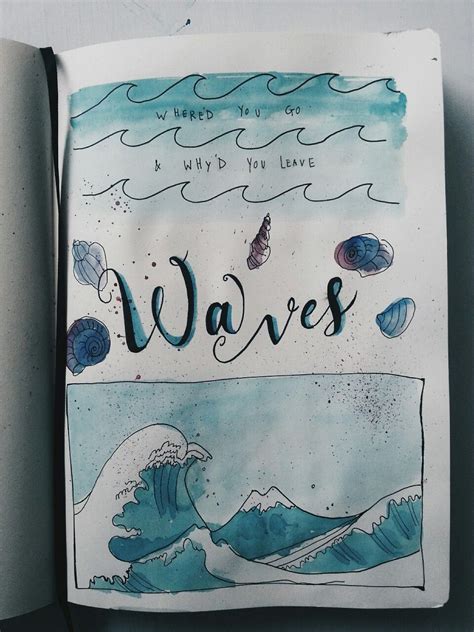 WHERED YOU GO
& WHY'D YOU LEAVE
Waves